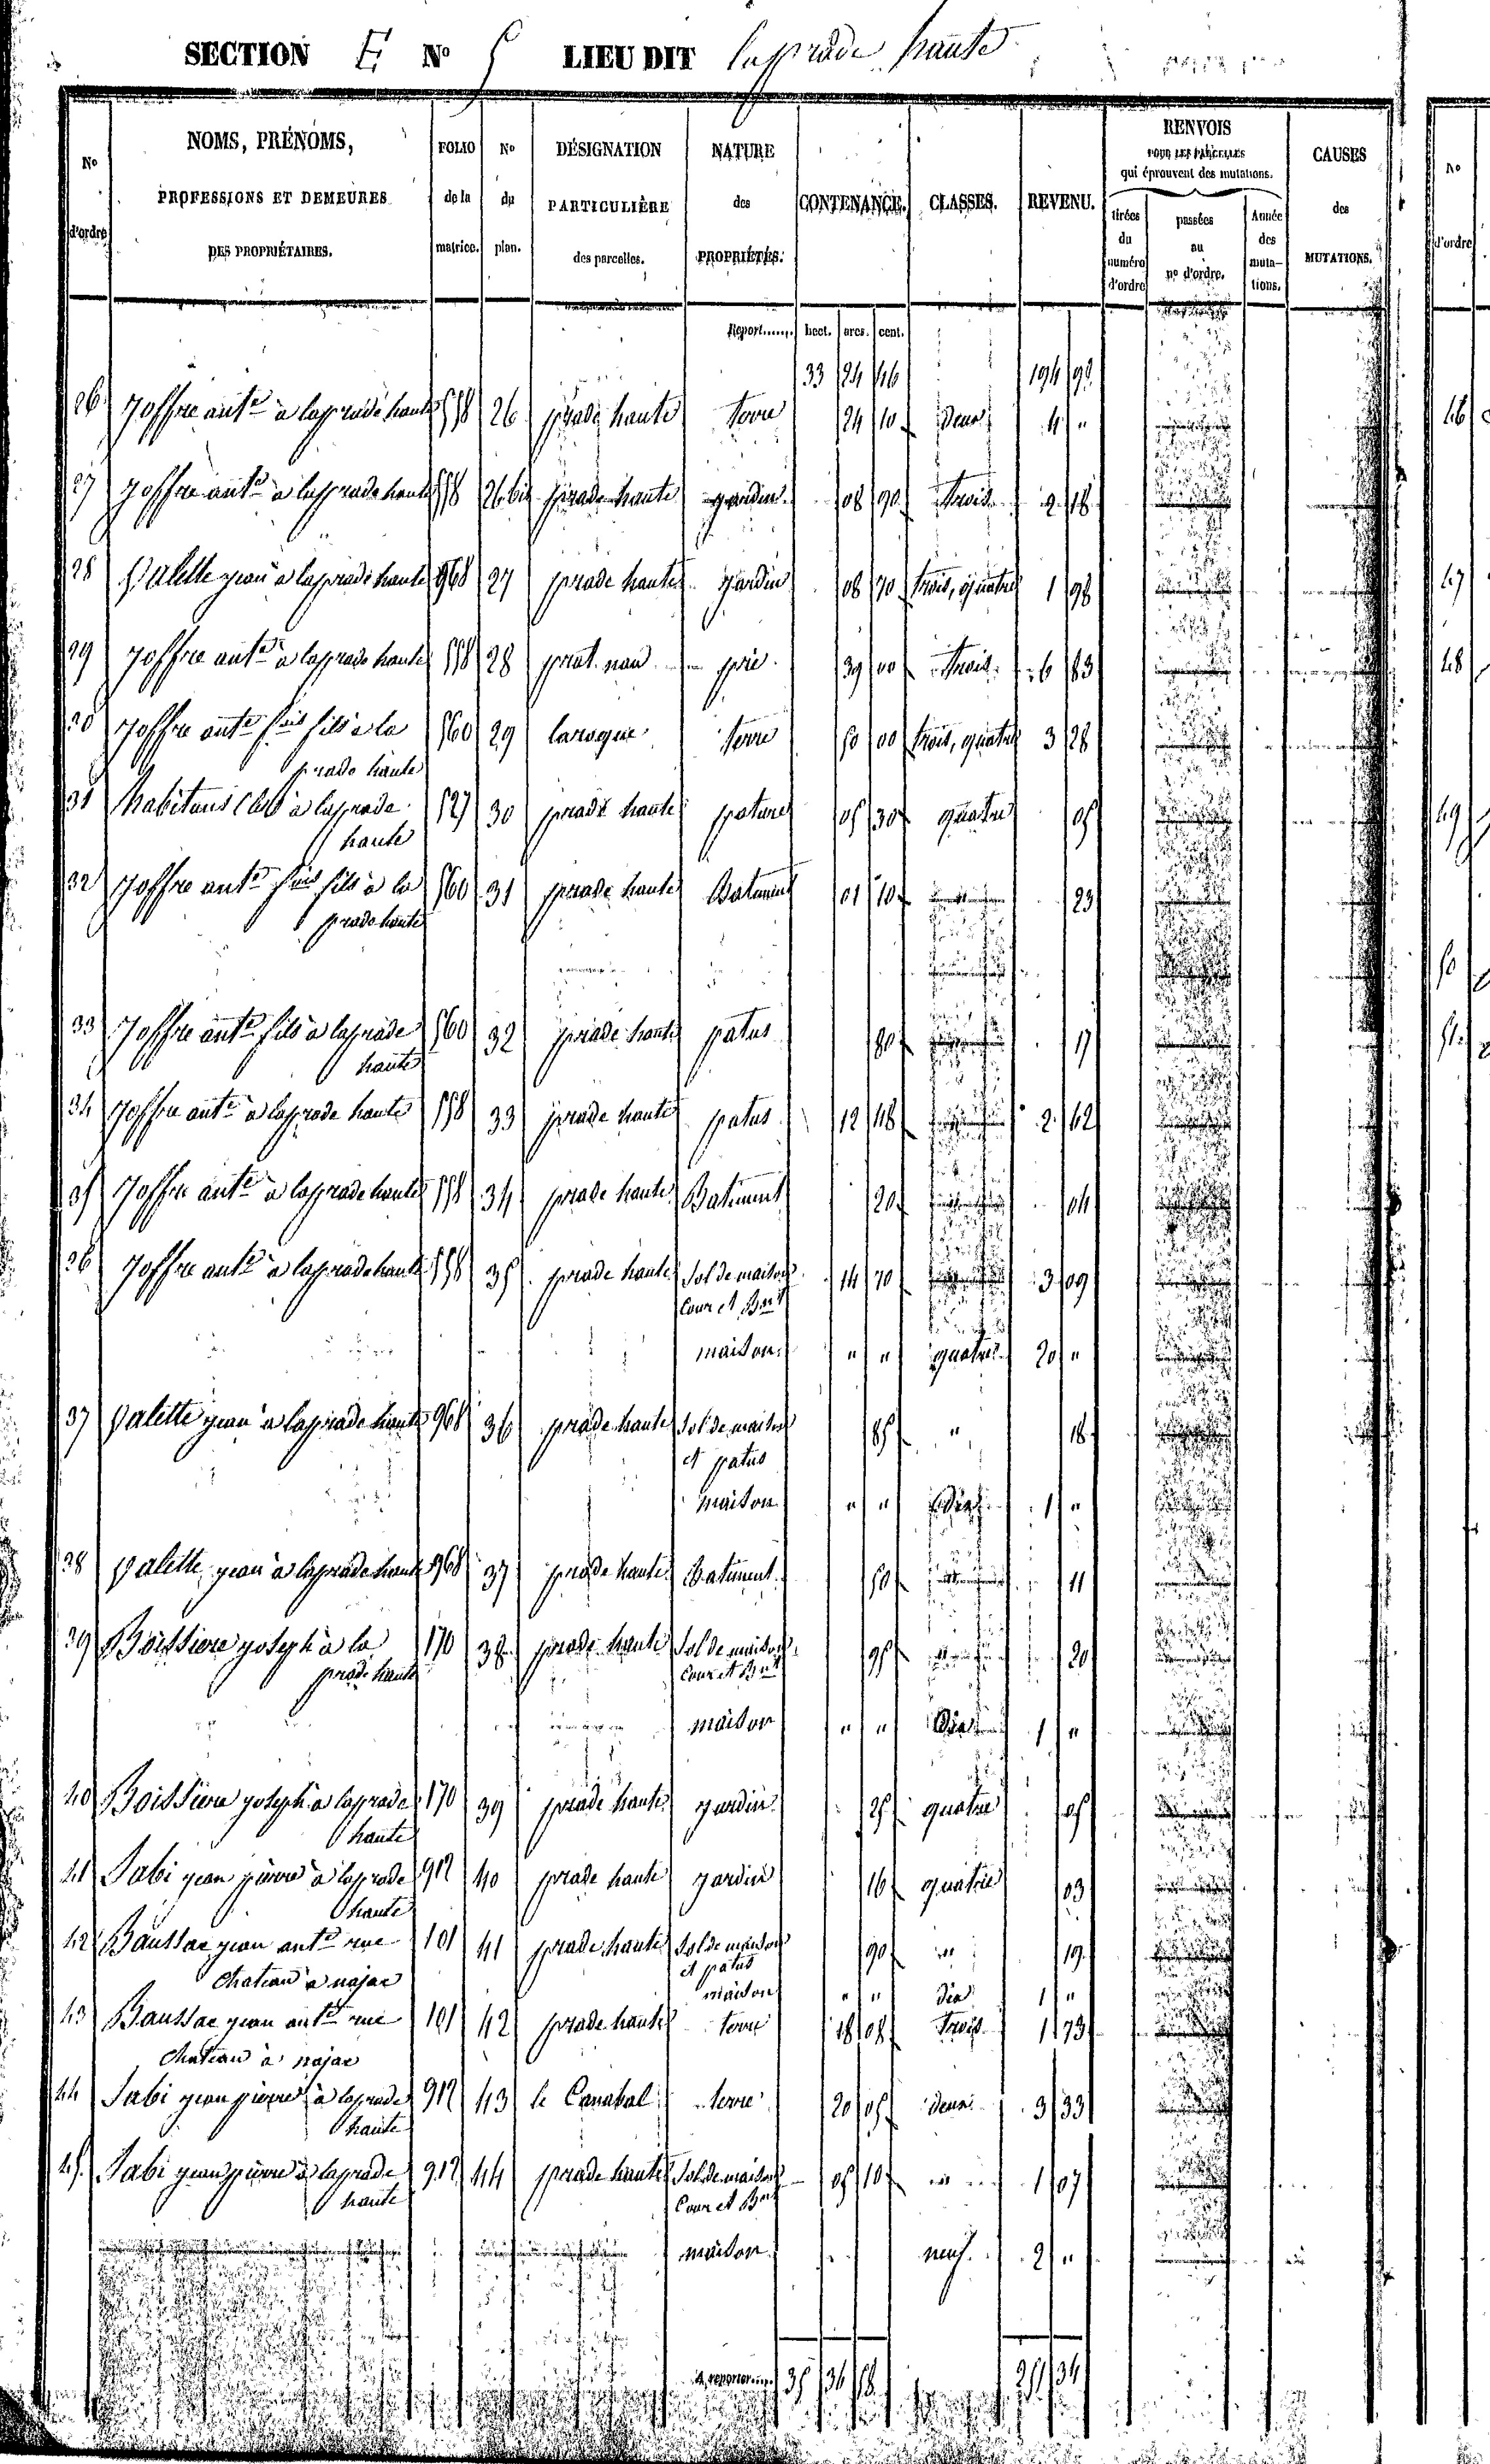 SECTION E N° 5 LIEU DIT laprade haute
N° d'ordre NOMS, PRÉNOMS, PROFESSIONS ET DEMEURES DES PROPRIÉTAIRES. FOLIO de la matrice. N° du plan. DÉSIGNATION PARTICULIÈRE des parcelles. NATURE des PROPRIÉTÉS. CONTENANCE. CLASSES. REVENU. RENVOIS POUR LES PARCELLES qui éprouvent des mutations. tirées du numéro d'ordre passées au n° d'ordre. Année des mutations. CAUSES des MUTATIONS. N° d'ordre
Report...... hect. ares. cent.
33 24 46 194 98
26 Joffre ant^e à laprade haute 558 26 prade haute terre 24 10 deux 4 "
46
27 Joffre ant^e à laprade haute 558 26 bis prade haute jardin 08 90 trois 2 18
28 Valette jean à laprade haute 968 27 prade haute jardin 08 70 trois, quatre 1 98
47
29 Joffre ant^e à laprade haute 558 28 prat nau pré 39 00 trois 6 83
48
30 Joffre ant^e fils à la 560 29 laroque terre 50 00 trois, quatre 3 28
prade haute
31 habitans (les) à laprade 527 30 prade haute pature 05 30 quatre 05
49
haute
32 Joffre ant^e fils à la 560 31 prade haute Batiment 01 10 23
prade haute
50
33 Joffre ant^e fils à laprade 560 32 prade haute patus 80 17
51
haute
34 Joffre ant^e à laprade haute 558 33 prade haute patus 12 48 2 62
35 Joffre ant^e à laprade haute 558 34 prade haute Batiment 20 04
36 Joffre ant^e à laprade haute 558 35 prade haute Sol de maison 14 70 3 09
Cour et B^nt
maison " " quatre 20 "
37 Valette jean à laprade haute 968 36 prade haute Sol de maison 85 " 18
et patus
maison " " dix 1 "
38 Valette jean à laprade haute 968 37 prade haute Batiment 50 11
39 Boissiere joseph à la 170 38 prade haute Sol de maison 95 20
prade haute Cour et B^nt
maison " " Dix 1 "
40 Boissiere joseph à laprade 170 39 prade haute jardin 25 quatre 05
haute
41 Sabi jean pierre à laprade 912 40 prade haute jardin 16 quatre 03
haute
42 Baussac jean ant^e rue 101 41 prade haute Sol de maison 90 " 19
chateau à najac et patus
maison " " dix 1 "
43 Baussac jean ant^e rue 101 42 prade haute terre 18 08 trois 1 73
chateau à najac
44 Sabi jean pierre à laprade 912 43 le Canabal terre 20 05 deux 3 33
haute
45 Sabi jean pierre à laprade 912 44 prade haute Sol de maison 05 10 1 07
haute Cour et B^nt
maison neuf 2 "
A reporter.... 35 36 58 251 34